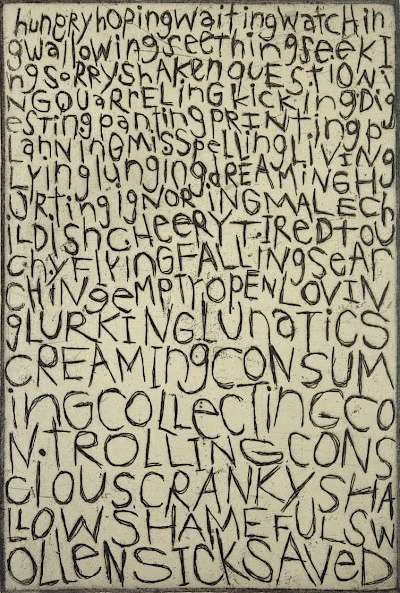 hungryhopingwaitingwatchin
gwallowingseethingseekI
ngsoRRYSHAKENQUESTIONi
NGQUaRRELiNGKICKingDig
estingpantingPRiNTingpu
LaNNiNGMiSSpellingLIVING
LyinglungingdREAMINGHU
JRtingigNORiNGMALECH
iLDiShCHeeRYTIREDtOU
chyFlyiNGFALLiNgSEAr
CHiNgeMPTyOPENLOVIN
gLURKINGLUNaTiCS
CREAMINgCONSUM
iNGCOLLecTiNGCO
NTROLLINGCONS
CIOUSCRANKYSHA
LLOWSHAMEFULSW
OLLENSICKSAVeD